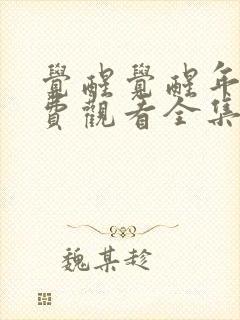 覺醒覺醒年
費觀看全集
魏某趁